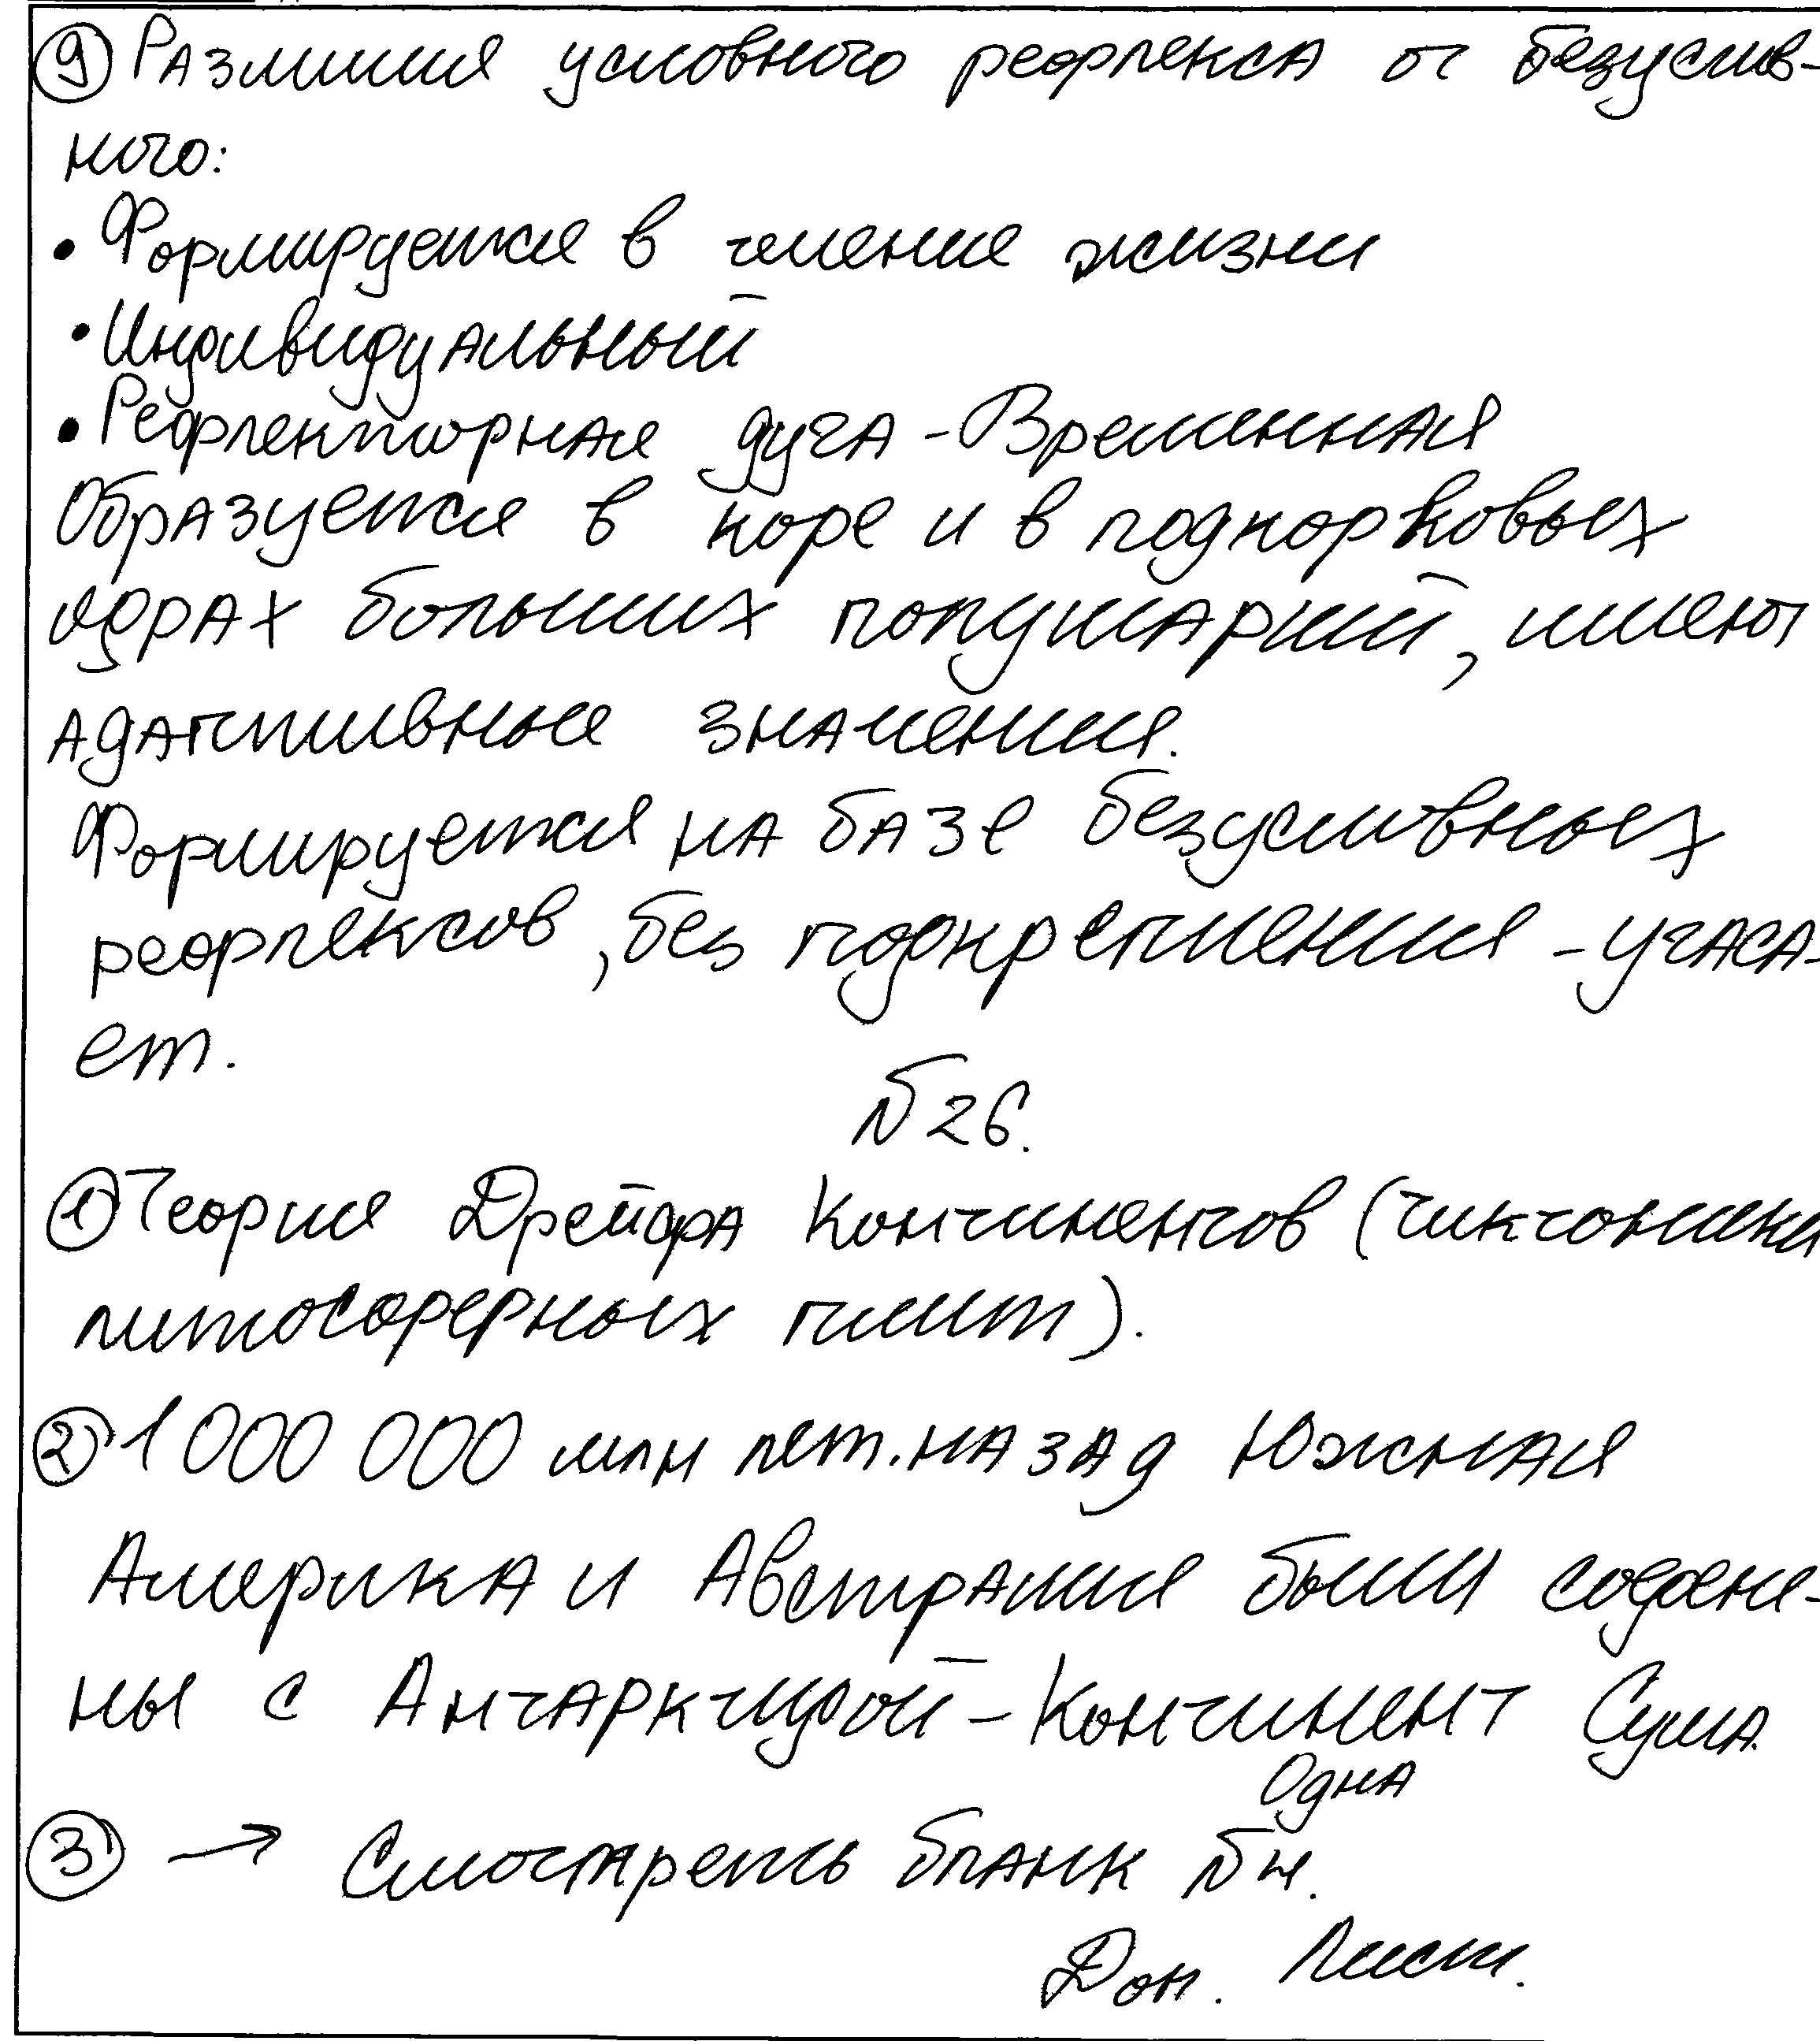 ⑨ Различия условного рефлекса от безуслов-
ного:
• Формируется в течение жизни
• Индивидуальный
• Рефлекторная дуга - Временная
Образуется в коре и в подкорковых
ядрах больших полушарий, имеют
адаптивные значения.
Формируется на базе безусловных
рефлексов, без подкрепления - угаса-
ет.
№26.
① Теория Дрейфа Континентов (тиктоники
литосферных плит).
② 1 000 000 млн лет. назад Южная
Америка и Австралия были соедене-
ны с Антарктидой - Континент Суша.
Одна
③ → Смостареть бланк №4.
Доп. Лист.